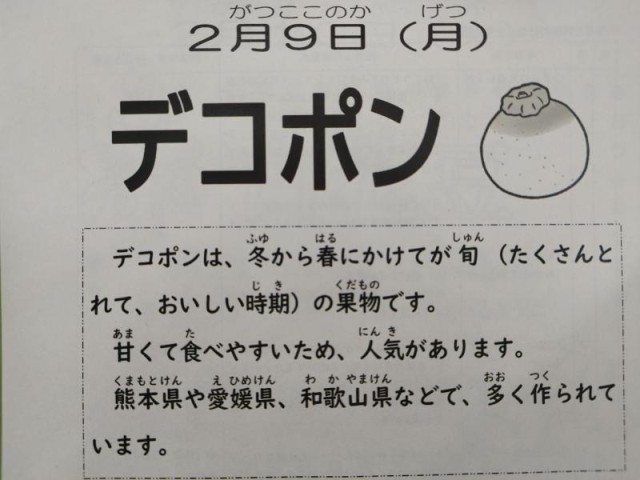 がつここのか げつ
2月9日（月）
デコポン
ふゆ はる しゅん
デコポンは、冬から春にかけてが旬（たくさんと
じき くだもの
れて、おいしい時期）の果物です。
あま た にんき
甘くて食べやすいため、人気があります。
くまもとけん えひめけん わかやまけん おお つく
熊本県や愛媛県、和歌山県などで、多く作られて
います。